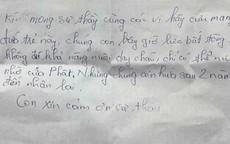 Kính mong sư thầy cùng các vị hãy cưu mang
đứa trẻ này, chúng con bây giờ lực bất tòng
không đủ khả năng nuôi dạy cháu, chỉ có thể nư
nhờ cửa Phật, Nhưng chúng con hứa sau 2 năm
đến nhận lại.
Con xin cảm ơn sư thầy